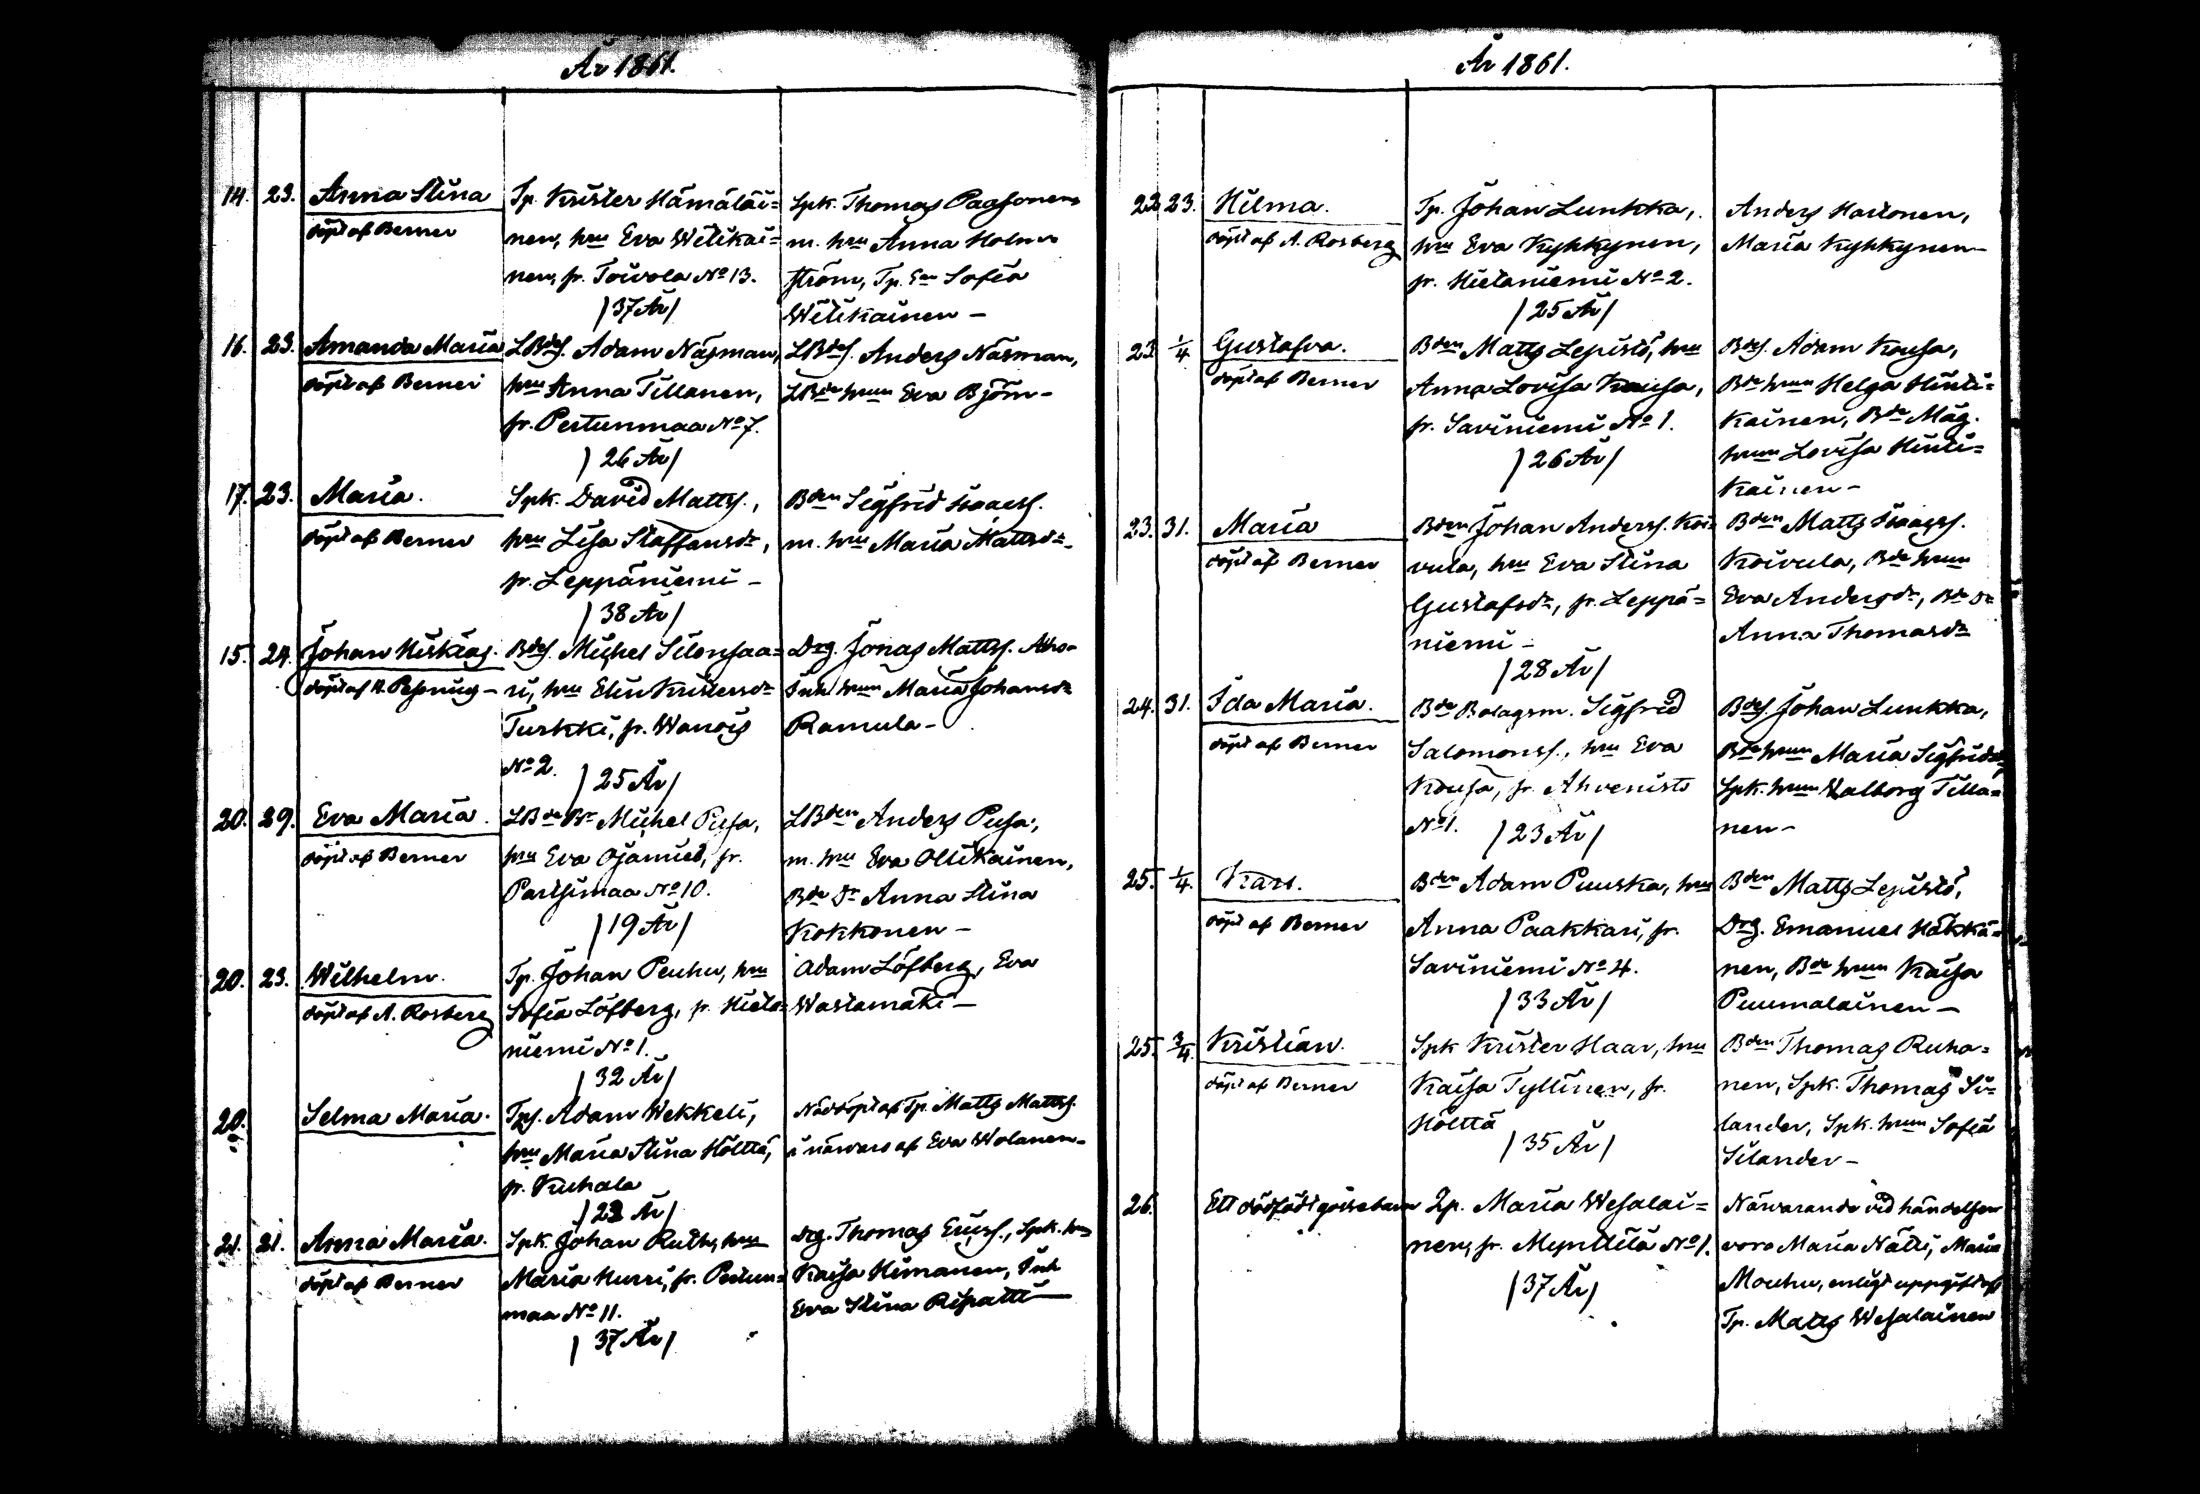 År 1861.
14. 23. Anna Stina
döpt af Berner
Tp. Krister Hämäläi=
nen, hru Eva Wilikai=
nen, fr. Toivola No 13.
/37 År/
Spk. Thomas Paasonen
m. hru Anna Holm
ström, Tp. En Sofia
Wilikainen -
16. 23. Amanda Maria
döpt af Berner
LBdes. Adam Näsman,
hru Anna Tillanen,
fr. Pertunmaa No 7.
/26 År/
LBdes. Anders Näsman,
LBde hrun Eva Björn -
17. 23. Maria.
döpt af Berner
Spk. David Matts.,
hru Lisa Staffansdr,
fr. Leppäniemi -
/38 År/
Bden Sigfrid Isaacs.
m. hru Maria Mattsdr -
15. 24. Johan Hiskias.
Bdes. Michel Silonsaa=
ri, hru Elin Kristersdr
Turkki, fr. Wanois
No 2.
/25 År/
Drg. Jonas Matts. Aho-
Inh. hrun Maria Johansdr
Ramula -
20. 29. Eva Maria.
döpt af Berner
LBde Br Michel Pusa,
hru Eva Ojamies, fr.
Partsimaa No 10.
/19 År/
LBden Anders Pusa,
m. hru Eva Ollikainen,
Bde Dr Anna Stina
Kokkonen -
20. 23. Wilhelm.
döpt af A. Rosberg
Tp. Johan Penhu, hru
Sofia Löfberg, fr. Hieta=
niemi No 1.
/32 År/
Adam Löfberg, Eva
Wastamäki -
20. Selma Maria.
Tps. Adam Wekkeli,
hru Maria Stina Hölttä,
fr. Kuhala
/22 År/
Nöddöpt af Tp. Matts Matts.
i närvaro af Eva Wolanen -
21. 21. Anna Maria.
döpt af Berner
Spk. Johan Ruth, hru
Maria Hurri, fr. Pertun=
maa No 11.
/37 År/
Drg. Thomas Erics., Spk. hru
Kaisa Himanen, Inh
Eva Stina Ripatti
År 1861.
22. 23. Hilma.
döpt af A. Rosberg
Tp. Johan Lunkka,
hru Eva Kyhkynen,
fr. Hietaniemi No 2.
/25 År/
Anders Hartonen,
Maria Kyhkynen -
23. 1/4. Gustafva.
döpt af Berner
Bden Matts Lepistö, hru
Anna Lovisa Kousa,
fr. Saviniemi No 1.
/26 År/
Bdes. Adam Kousa,
Bde hrun Helga Hinti=
kainen, Bde Måg.
hrun Lovisa Hinti=
kainen -
23. 31. Maria
döpt af Berner
Bden Johan Anders. Koi=
vula, hru Eva Stina
Gustafsdr, fr. Leppä=
niemi -
/28 År/
Bden Matts Isaacs.
Koivula, Bde hrun
Eva Andersdr, Bde Dr
Anna Thomasdr
24. 31. Ida Maria.
döpt af Berner
Bde Bolagsm. Sigfrid
Salomons., hru Eva
Kousa, fr. Ahvenisto
No 1.
/23 År/
Bdes. Johan Lunkka,
Bde hrun Maria Sigfridsdr,
Spk. hrun Walborg Tilla=
nen -
25. 1/4. Karl.
döpt af Berner
Bden Adam Puuska, hru
Anna Paakkari, fr.
Saviniemi No 4.
/33 År/
Bden Matts Lepistö,
Drg. Emanuel Häkkä=
nen, Bde hrun Kaisa
Puumalainen -
25. 3/4. Kristian.
döpt af Berner
Spk Krister Haar, hru
Kaisa Tyllinen, fr.
Hölttä
/35 År/
Bden Thomas Ruho=
nen, Spk. Thomas Si=
lander, Spk. hrun Sofia
Silander -
26. Ett dödfödt gossebarn
Qp. Maria Wesalai=
nen, fr. Mynttilä No 1.
/37 År/
Närvarande vid händelsen
voro Maria Nätti, Maria
Mouhu, enligt uppgift af
Tp. Matts Wesalainen